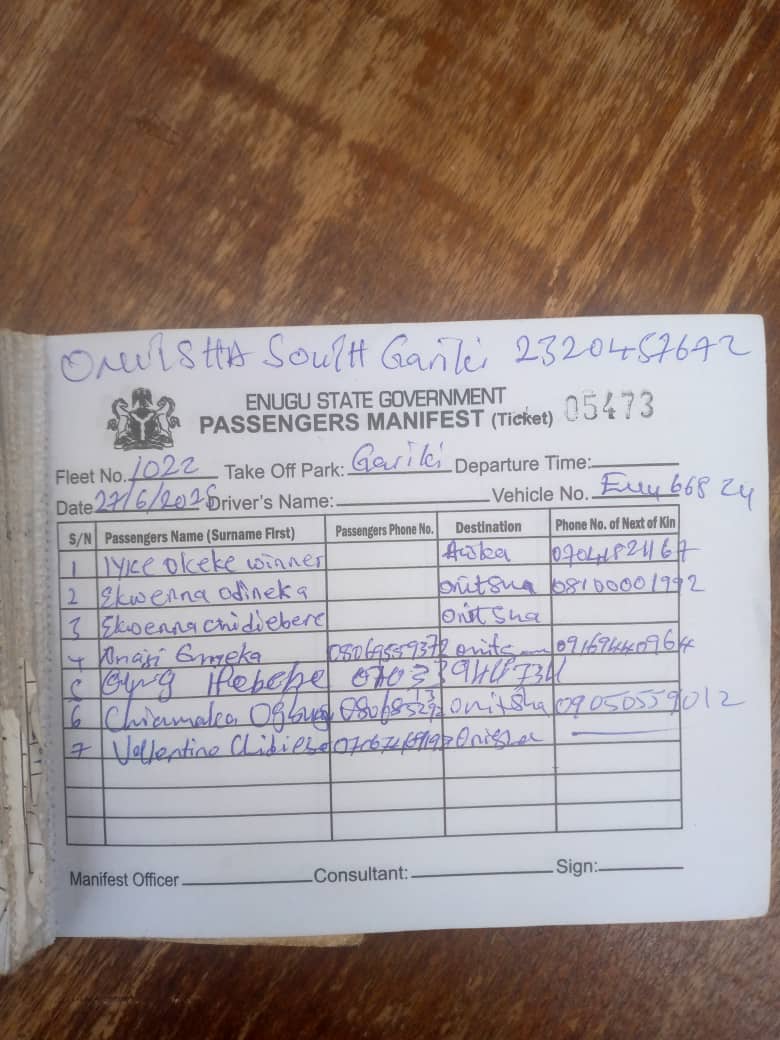 ONITSHA South Gariki 2320457672
ENUGU STATE GOVERNMENT
PASSENGERS MANIFEST (Ticket) 05473
Fleet No. 1022 Take Off Park: Gariki Departure Time:
Date 27/6/2025 Driver's Name: Vehicle No. Enu 668 Zy
S/N Passengers Name (Surname First) Passengers Phone No. Destination Phone No. of Next of Kin
1 Okeke winner Awka
2 Ekwenna Odineka onitsha 08100001992
3 Ekwenna chidiebere onitsha
4 Emeka 08069559372 09169440964
Ifebepe
6 Chiamaka onitsha 09050559012
7 Vallentine
Manifest Officer Consultant: Sign: